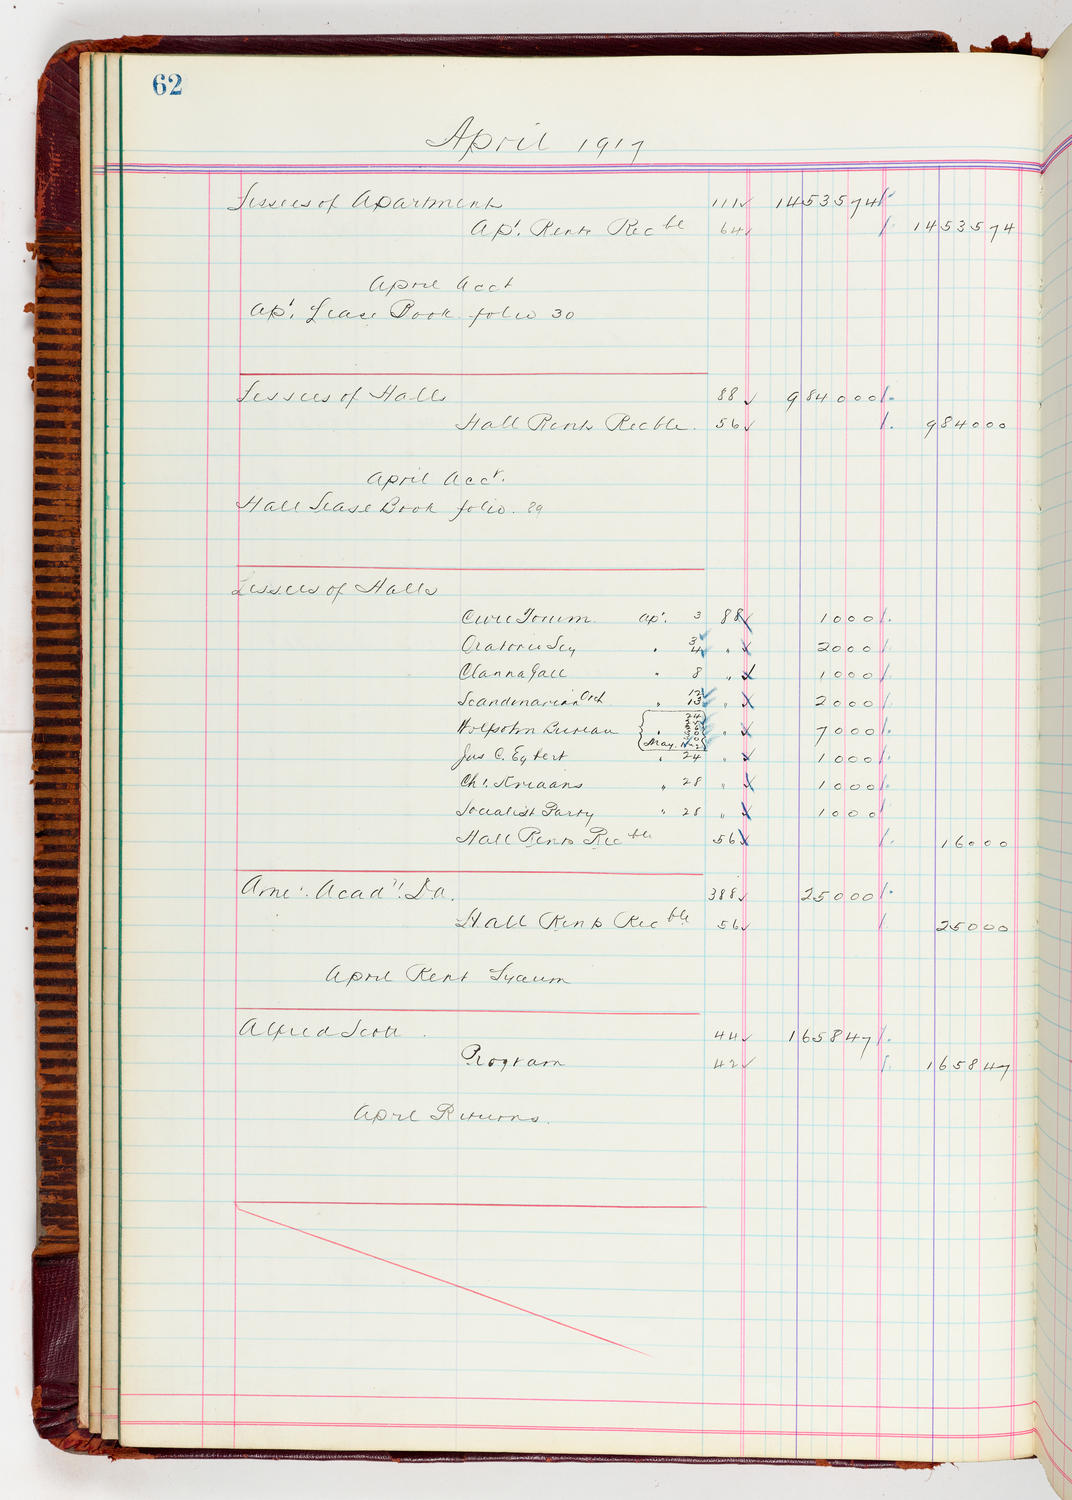 62
April 1917
Lessees of Apartments 111 ✓ 14535 74
Apt. Rents Recble 64 ✓ 14535 74
April Acct
Apt. Lease Book folio 30
Lessees of Halls 88 ✓ 9840 00
Hall Rents Recble. 56 ✓ 9840 00
April Acct.
Hall Lease Book folio. 89
Lessees of Halls
Civic Forum. Apl. 3 88 ✓ 10 00
Oratorio Scy " 3 4 " ✓ 20 00
Clanna Gael " 8 " ✓ 10 00
Scandinavian Orch " 12 13 " ✓ 20 00
Wolfsohn Bureau " 24 May " ✓ 70 00
Jas C. Egbert " 24 " ✓ 10 00
Ch. Kriaans " 28 " ✓ 10 00
Socialist Party " 28 " ✓ 10 00
Hall Rents Recble 56 ✓ 160 00
Amer. Acady. Da. 388 ✓ 250 00
Hall Rents Recble 56 ✓ 250 00
April Rent Lyceum
Alfred Scott. 44 ✓ 1658 47
Program 42 ✓ 1658 47
April Returns.